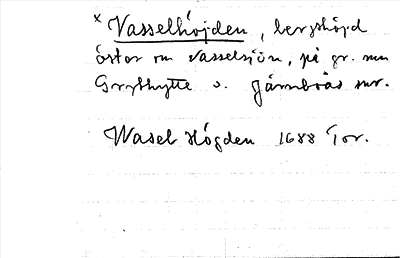 x Vasselhöjden, bergshöjd
öster om Vasselsjön, på gr. mn
Grythytte o. Järnboås snr.
Wasel Högden 1688 Tor.